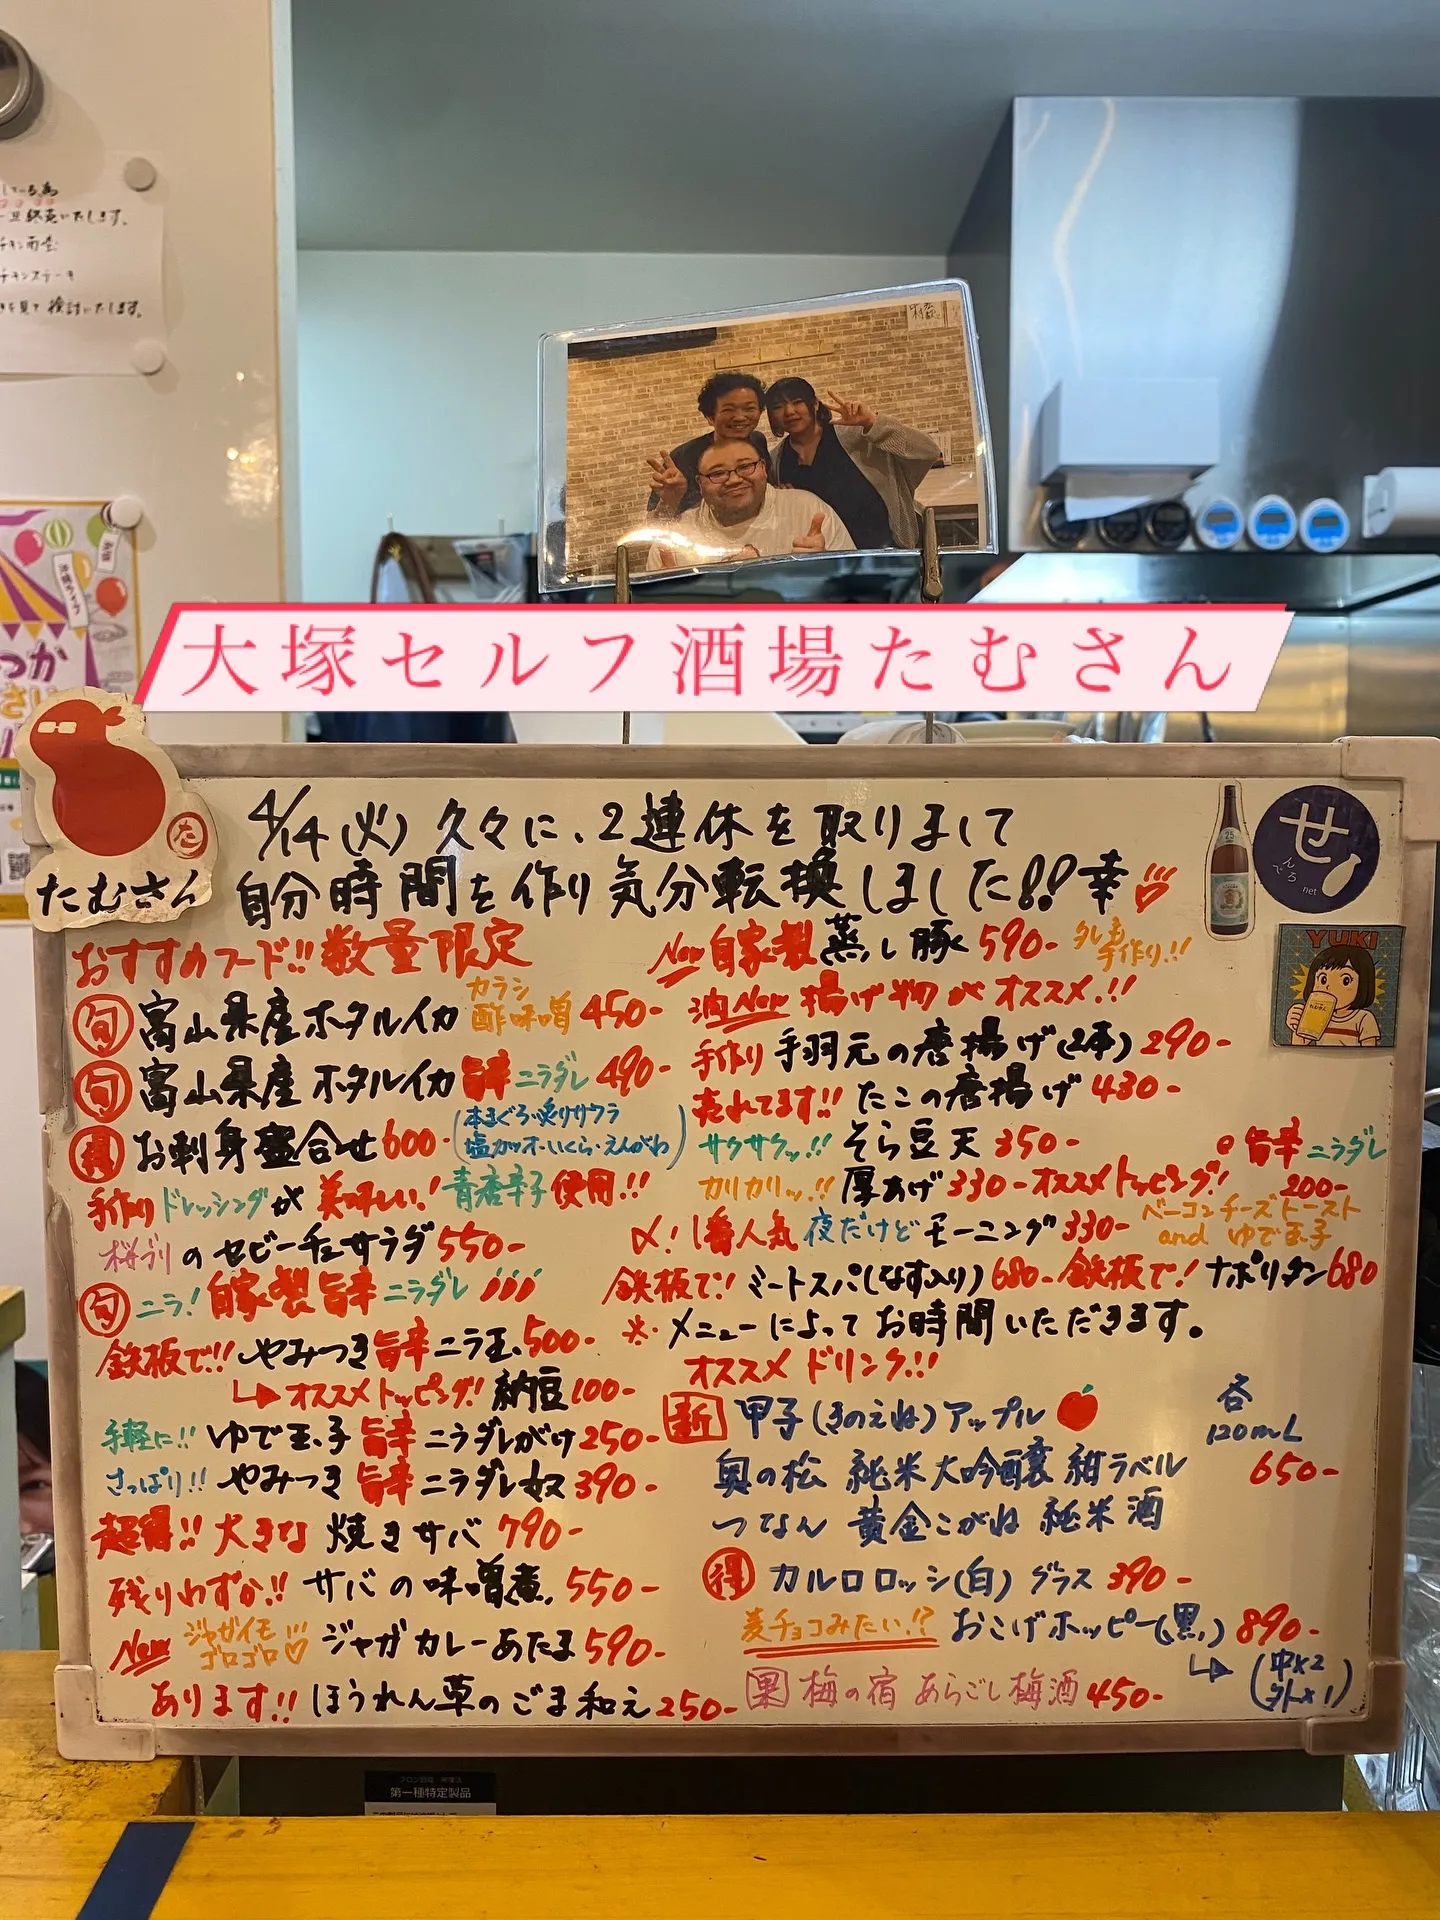 一旦終売いたします。
チキン南蛮
チキンステーキ
を見て検討いたします。
大塚セルフ酒場たむさん
たむさん
4/14(火)久々に、2連休を取りまして
自分時間を作り気分転換しました!!幸
せんべろnet
YUKI
おすすめフード!!数量限定
旬 富山県産ホタルイカ カラシ酢味噌 450-
旬 富山県産ホタルイカ 旨辛ニラダレ 490-
得 お刺身盛合せ 600- (本まぐろ・炙りサワラ
塩カツオ・いくら・えんがわ)
手作りドレッシングが美味しい!青唐辛子使用!!
桜ブリのセビーチェサラダ 550-
旬 ニラ!自家製旨辛ニラダレ
鉄板で!!やみつき旨辛ニラ玉 500-
オススメトッピング!納豆 100-
手軽に!!ゆで玉子旨辛ニラダレがけ 250-
さっぱり!!やみつき旨辛ニラダレ奴 390-
超得!!大きな焼きサバ 790-
残りわずか!!サバの味噌煮 550-
New ジャガイモゴロゴロ♡ ジャガカレーあたま 590-
あります!!ほうれん草のごま和え 250-
New 自家製蒸し豚 590- タレも手作り!!
油New 揚げ物がオススメ!!
手作り 手羽元の唐揚げ(2本) 290-
売れてます!!たこの唐揚げ 430-
サクサクッ!!そら豆天 350-
カリカリッ!!厚あげ 330- オススメトッピング! 旨辛ニラダレ 200-
〆!1番人気 夜だけどモーニング 330- ベーコンチーズトースト
and ゆで玉子
鉄板で!ミートスパ(なす入り) 680- 鉄板で!ナポリタン 680
※メニューによってお時間いただきます。
オススメドリンク!!
新 甲子(きのえね)アップル
奥の松 純米大吟醸 紺ラベル
つなん 黄金こがね 純米酒
各
120mL
650-
得 カルロロッシ(白)グラス 390-
麦チョコみたい!? おこげホッピー(黒) 890-
(中×2
外×1)
果 梅の宿 あらごし梅酒 450-
第一種特定製品